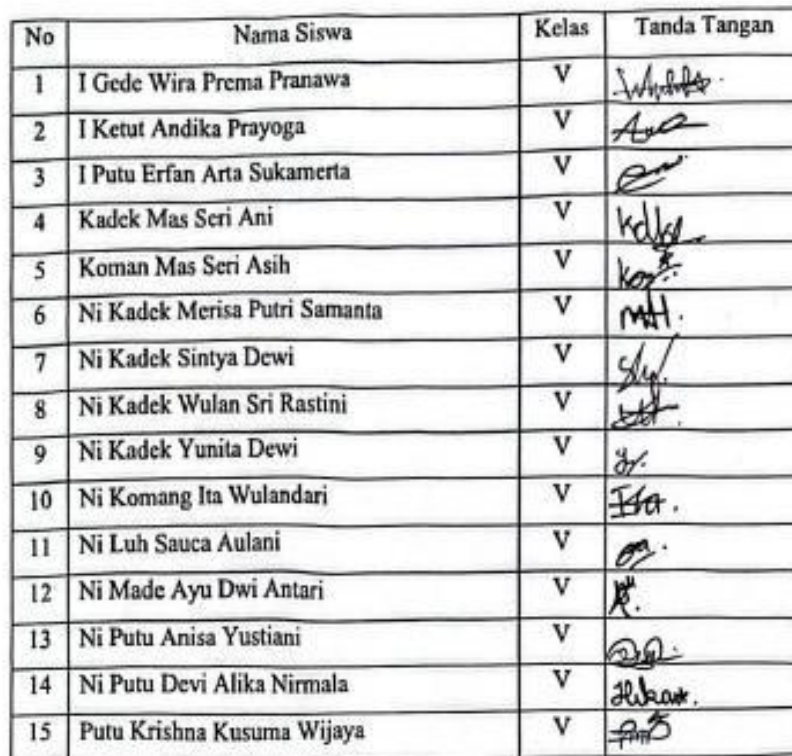 No Nama Siswa Kelas Tanda Tangan
1 I Gede Wira Prema Pranawa V
2 I Ketut Andika Prayoga V
3 I Putu Erfan Arta Sukamerta V
4 Kadek Mas Seri Ani V
5 Koman Mas Seri Asih V
6 Ni Kadek Merisa Putri Samanta V
7 Ni Kadek Sintya Dewi V
8 Ni Kadek Wulan Sri Rastini V
9 Ni Kadek Yunita Dewi V
10 Ni Komang Ita Wulandari V Ita.
11 Ni Luh Sauca Aulani V
12 Ni Made Ayu Dwi Antari V
13 Ni Putu Anisa Yustiani V
14 Ni Putu Devi Alika Nirmala V
15 Putu Krishna Kusuma Wijaya V